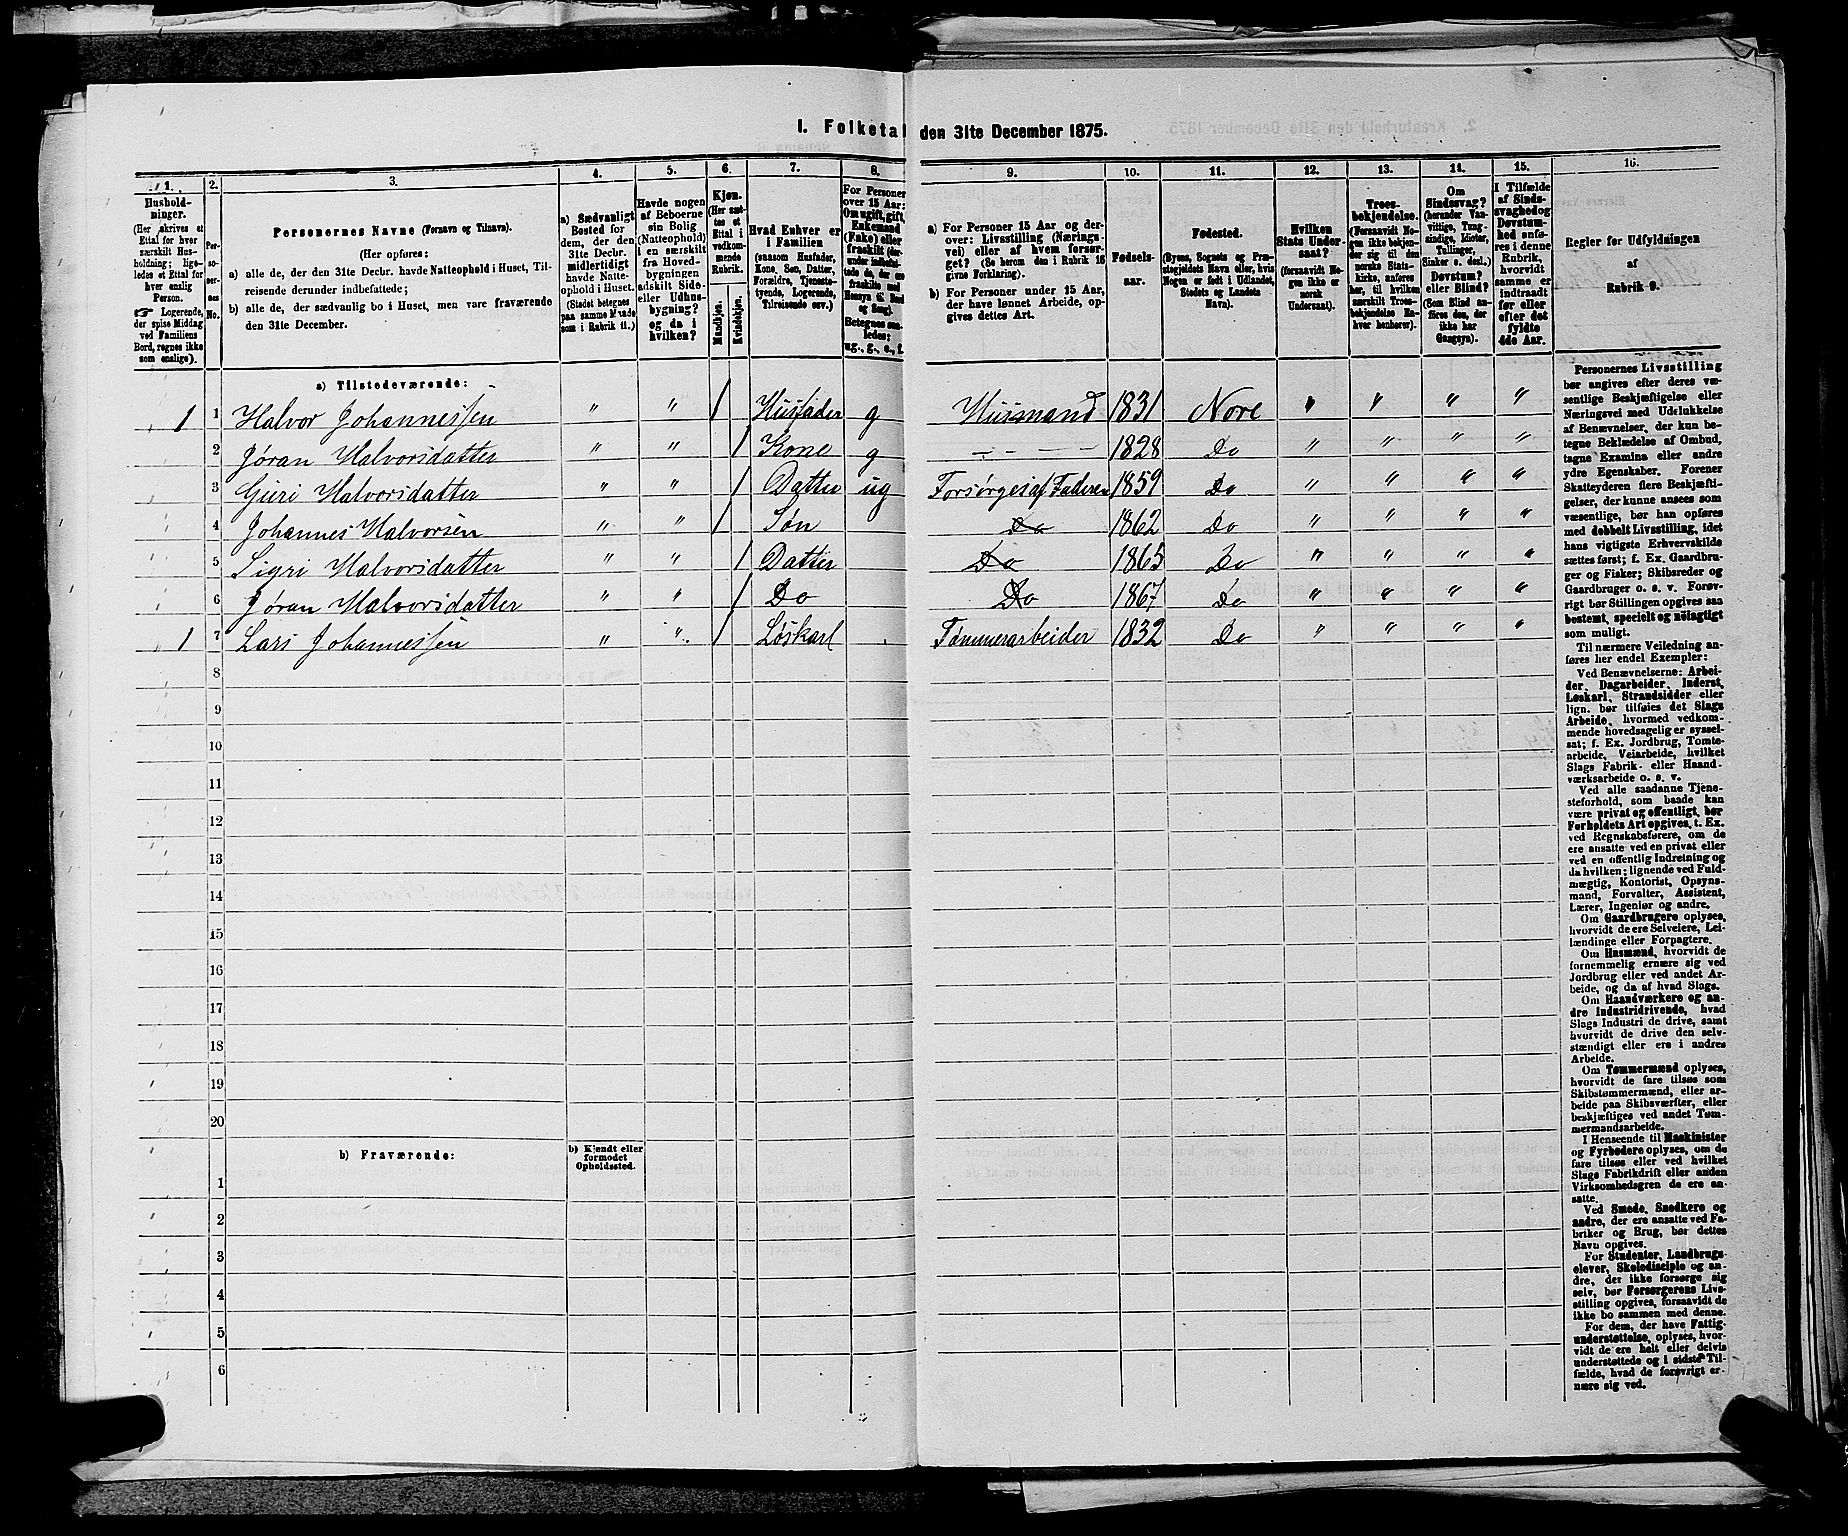 I. Folketal den 31te December 1875.
1. 2. 3. 4. 5. 6. 7. 8. 9. 10. 11. 12. 13. 14. 15. 16.
Hushold-
ninger.
(Her skrives et
Ettal for hver
særskilt Hus-
holdning; lige-
ledes et Ettal for
hver enslig
Person.
☞ Logerende,
der spise Middag
ved Familiens
Bord, regnes ikke
som enslige).
Personernes No.
Personernes Navne (Fornavn og Tilnavn).
(Her opføres:
a) alle de, der den 31te Decbr. havde Natteophold i Huset, Til-
reisende derunder indbefattede;
b) alle de, der sædvanlig bo i Huset, men vare fraværende
den 31te December.
a) Sædvanligt
Bosted for
dem, der den
31te Decbr.
midlertidigt
havde Natte-
ophold i Huset.
(Stedet betegnes
paa samme Maade
som i Rubrik 11.)
Havde nogen
af Beboerne
sin Bolig
(Natteophold)
i en særskilt
fra Hoved-
bygningen
adskilt Side-
eller Udhus-
bygning?
og da i
hvilken?
Kjøn.
(Her sæt-
tes et
Ettal i
vedkom-
mende
Rubrik.
Mandkjøn.
Kvindekjøn.
Hvad Enhver er
i Familien
(saasom Husfader,
Kone, Søn, Datter,
Forældre, Tjeneste-
tyende, Logerende,
Tilreisende osv.)
For Personer
over 15 Aar:
Om ugift, gift,
Enkemand
(Enke) eller
fraskilt
Betegnes saa-
ledes:
ug., g., e., f.
a) For Personer 15 Aar og der-
over: Livsstilling (Nærings-
vei) eller af hvem forsør-
get? (Se herom den i Rubrik 16
givne Forklaring).
b) For Personer under 15 Aar,
der have lønnet Arbeide, op-
gives dettes Art.
Fødsels-
aar.
Fødested.
(Byens, Sognets og Præ-
stegjeldets Navn eller, hvis
Nogen er født i Udlandet,
Stedets og Landets
Navn).
Hvilken
Stats Under-
saat?
(forsaavidt No-
gen ikke er
norsk
Undersaat).
Troes-
bekjendelse.
(Forsaavidt No-
gen ikke bekjen-
der sig til den
norske Stats-
kirke, anføres
her, til hvilken
særskilt Troes-
bekjendelse En-
hver henhører).
Om
Sindssvag?
(herunder Van-
vittige, Tung-
sindige, Idioter,
Tullinger,
Sinker o. desl.).
Døvstum?
eller Blind?
(Som Blind an-
føres den, der
ikke har
Gangsyn).
I Tilfælde
af Sinds-
svaghed og
Døvstum-
hed anfø-
res i denne
Rubrik,
hvorvidt
samme er
indtraadt
før eller
efter det
fyldte
4de Aar.
Regler for Udfyldningen
af
Rubrik 9.
a) Tilstedeværende:
1 1 Halvor Johannessen " " 1 Husfader g Husmand 1831 Nore " " " "
2 Jøran Halvorsdatter " " 1 Kone g - - - - 1828 Do " " " "
3 Guri Halvorsdatter " " 1 Datter ug Forsørges af Faderen 1859 Do " " " "
4 Johannes Halvorsen " " 1 Søn Do 1862 Do " " " "
5 Sigri Halvorsdatter " " 1 Datter Do 1865 Do " " " "
6 Jøran Halvorsdatter " " 1 Do Do 1867 Do " " " "
1 7 Lars Johannessen " " 1 Løskarl Tømmerarbeider 1832 Do " " " "
8
9
10
11
12
13
14
15
16
17
18
19
20
b) Fraværende:
b) Kjendt eller
formodet
Opholdssted.
1
2
3
4
5
6
Personernes Livsstilling
bør angives efter deres væ-
sentlige Beskjæftigelse eller
Næringsvei med Udelukkelse
af Benævnelser, der kun be-
tegne Beklædelse af Ombud,
tagne Examina eller andre
ydre Egenskaber. Forener
Skatteyderen flere Beskjæfti-
gelser, der kunne ansees som
væsentlige, bør han opføres
med dobbelt Livsstilling, idet
hans vigtigste Erhvervskilde
sættes først; f. Ex. Gaardbru-
ger og Fisker; Skibsreder og
Gaardbruger o. s. v. Forøv-
rigt bør Stillingen opgives saa
bestemt, specielt og nøiagtigt
som muligt.
Til nærmere Veiledning an-
føres her endel Exempler:
Ved Benævnelserne: Arbei-
der, Dagarbeider, Inderst,
Løskarl, Strandsidder eller
lign. bør tilføies det Slags
Arbeide, hvormed vedkom-
mende hovedsagelig er syssel-
sat; f. Ex. Jordbrug, Tomte-
arbeide, Veiarbeide, hvilket
Slags Fabrik- eller Haand-
værksarbeide o. s. v.
Ved alle saadanne Tjene-
steforhold, som baade kan
være privat og offentligt, bør
Forholdets Art opgives, t. Ex.
ved Regnskabsførere, om de
ere ansatte ved en privat eller
ved en offentlig Indretning og
da hvilken; lignende ved Fuld-
mægtig, Kontorist, Opsyns-
mand, Forvalter, Assistent,
Lærer, Ingeniør og andre.
Om Gaardbrugere oplyses,
hvorvidt de ere Selveiere, Lei-
lændinge eller Forpagtere.
Om Husmænd, hvorvidt de
fornemmelig ernære sig ved
Jordbrug eller ved andet Ar-
beide, og da af hvad Slags.
Om Haandværkere og an-
dre Industridrivende, hvad
Slags Industri de drive, samt
hvorvidt de drive den selv-
stændigt eller ere i andres
Arbeide.
Om Tømmermænd oplyses,
hvorvidt de fare tilsøs som
Skibstømmermænd, eller ar-
beide paa Skibsværfter, eller
beskjæftiges ved andet Tøm-
mermandsarbeide.
I Henseende til Maskinister
og Fyrbødere oplyses, om de
fare tilsøs eller ved hvilket
Slags Fabrikdrift eller anden
Virksomhedsgren de ere an-
satte.
Ved Smede, Snedkere og
andre, der ere ansatte ved Fa-
briker og Brug, bør dettes
Navn opgives.
For Studenter, Landbrugs-
elever, Skoledisciple og an-
dre, der ikke forsørge sig
selv, bør Forsørgerens Livs-
stilling opgives, forsaavidt de
ikke bo sammen med denne.
For dem, der have Fattig-
understøttelse, oplyses, hvor-
vidt de ere helt eller delvis
understøttede og i sidste Til-
fælde, hvad de forøvrigt er-
nære sig ved.